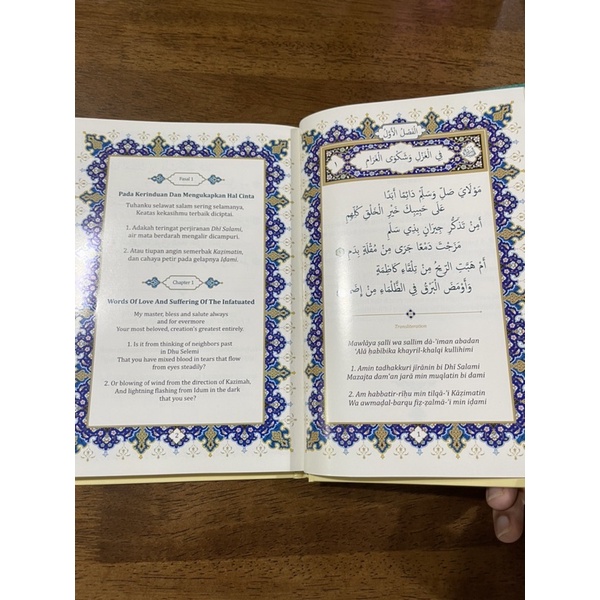 الفصل الأول
في الغزل وشكوى الغرام
مَوْلَايَ صَلِّ وَسَلِّمْ دَائِمًا أَبَدًا
عَلَى حَبِيبِكَ خَيْرِ الْخَلْقِ كُلِّهِمِ
أَمِنْ تَذَكُّرِ جِيرَانٍ بِذِي سَلَمِ
مَزَجْتَ دَمْعًا جَرَى مِنْ مُقْلَةٍ بِدَمِ
أَمْ هَبَّتِ الرِّيحُ مِنْ تِلْقَاءِ كَاظِمَةٍ
وَأَوْمَضَ الْبَرْقُ فِي الظَّلْمَاءِ مِنْ إِضَمِ
Transliteration
Mawlāya ṣalli wa sallim dā-'iman abadan
'Alā ḥabibika khayril-khalqi kullihimi
1. Amin tadhakkuri jīrānin bi Dhī Salami
Mazajta dam'an jarā min muqlatin bi dami
2. Am habbatir-rīḥu min tilqā-'i Kāẓimatin
Wa awmaḍal-barqu fiẓ-ẓalmā-'i min iḍami
1
Fasal 1
Pada Kerinduan Dan Mengukapkan Hal Cinta
Tuhanku selawat salam sering selamanya,
Keatas kekasihmu terbaik diciptai.
1. Adakah teringat perjiranan Dhī Salami,
air mata berdarah mengalir dicampuri.
2. Atau tiupan angin semerbak Kaẓimatin,
dan cahaya petir pada gelapnya Iḍami.
Chapter 1
Words Of Love And Suffering Of The Infatuated
My master, bless and salute always
and for evermore
Your most beloved, creation's greatest entirely.
1. Is it from thinking of neighbors past
in Dhu Selemi
That you have mixed blood in tears that flow
from eyes steadily?
2. Or blowing of wind from the direction of Kazimah,
And lightning flashing from Idum in the dark
that you see?
2